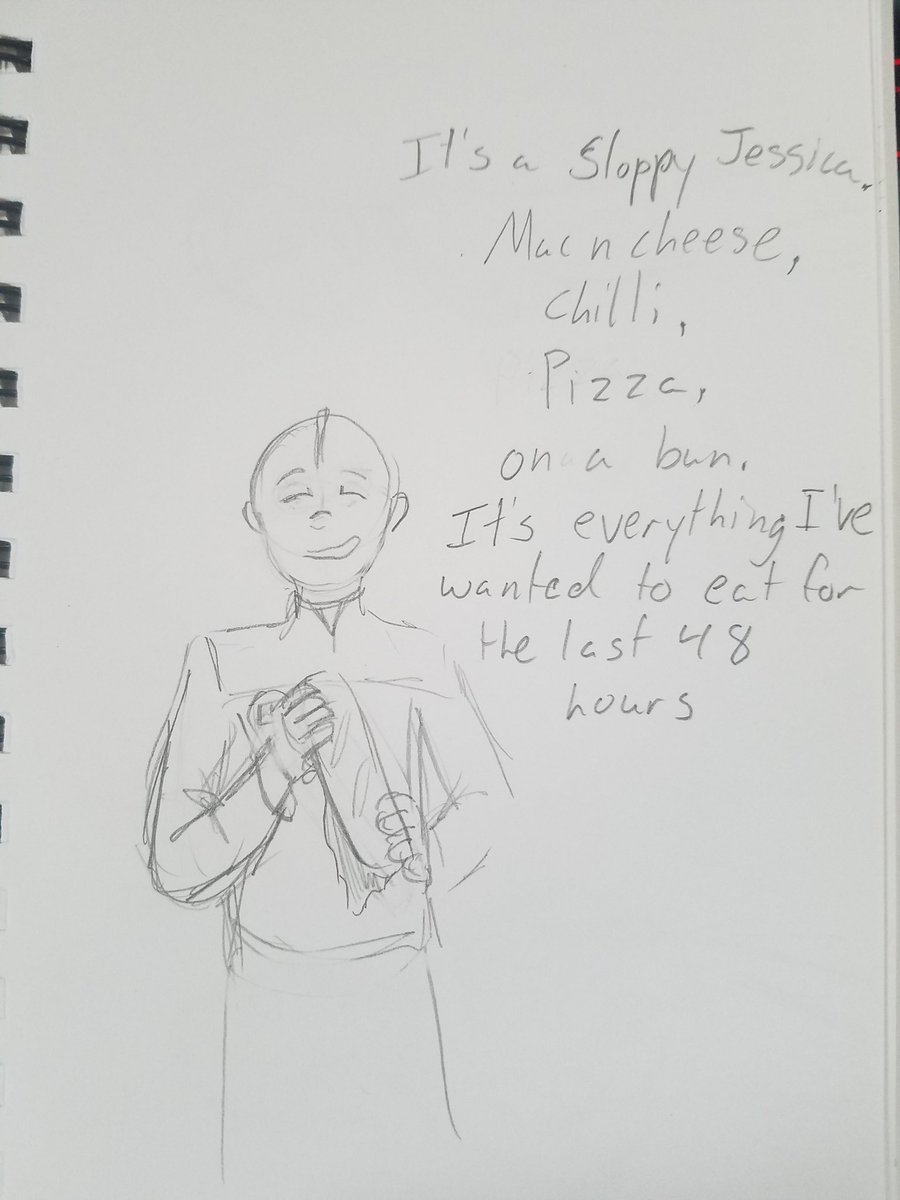 It's a Sloppy Jessica.
Mac n cheese,
Chilli,
Pizza,
on a bun.
It's everything I've
wanted to eat for
the last 48
hours